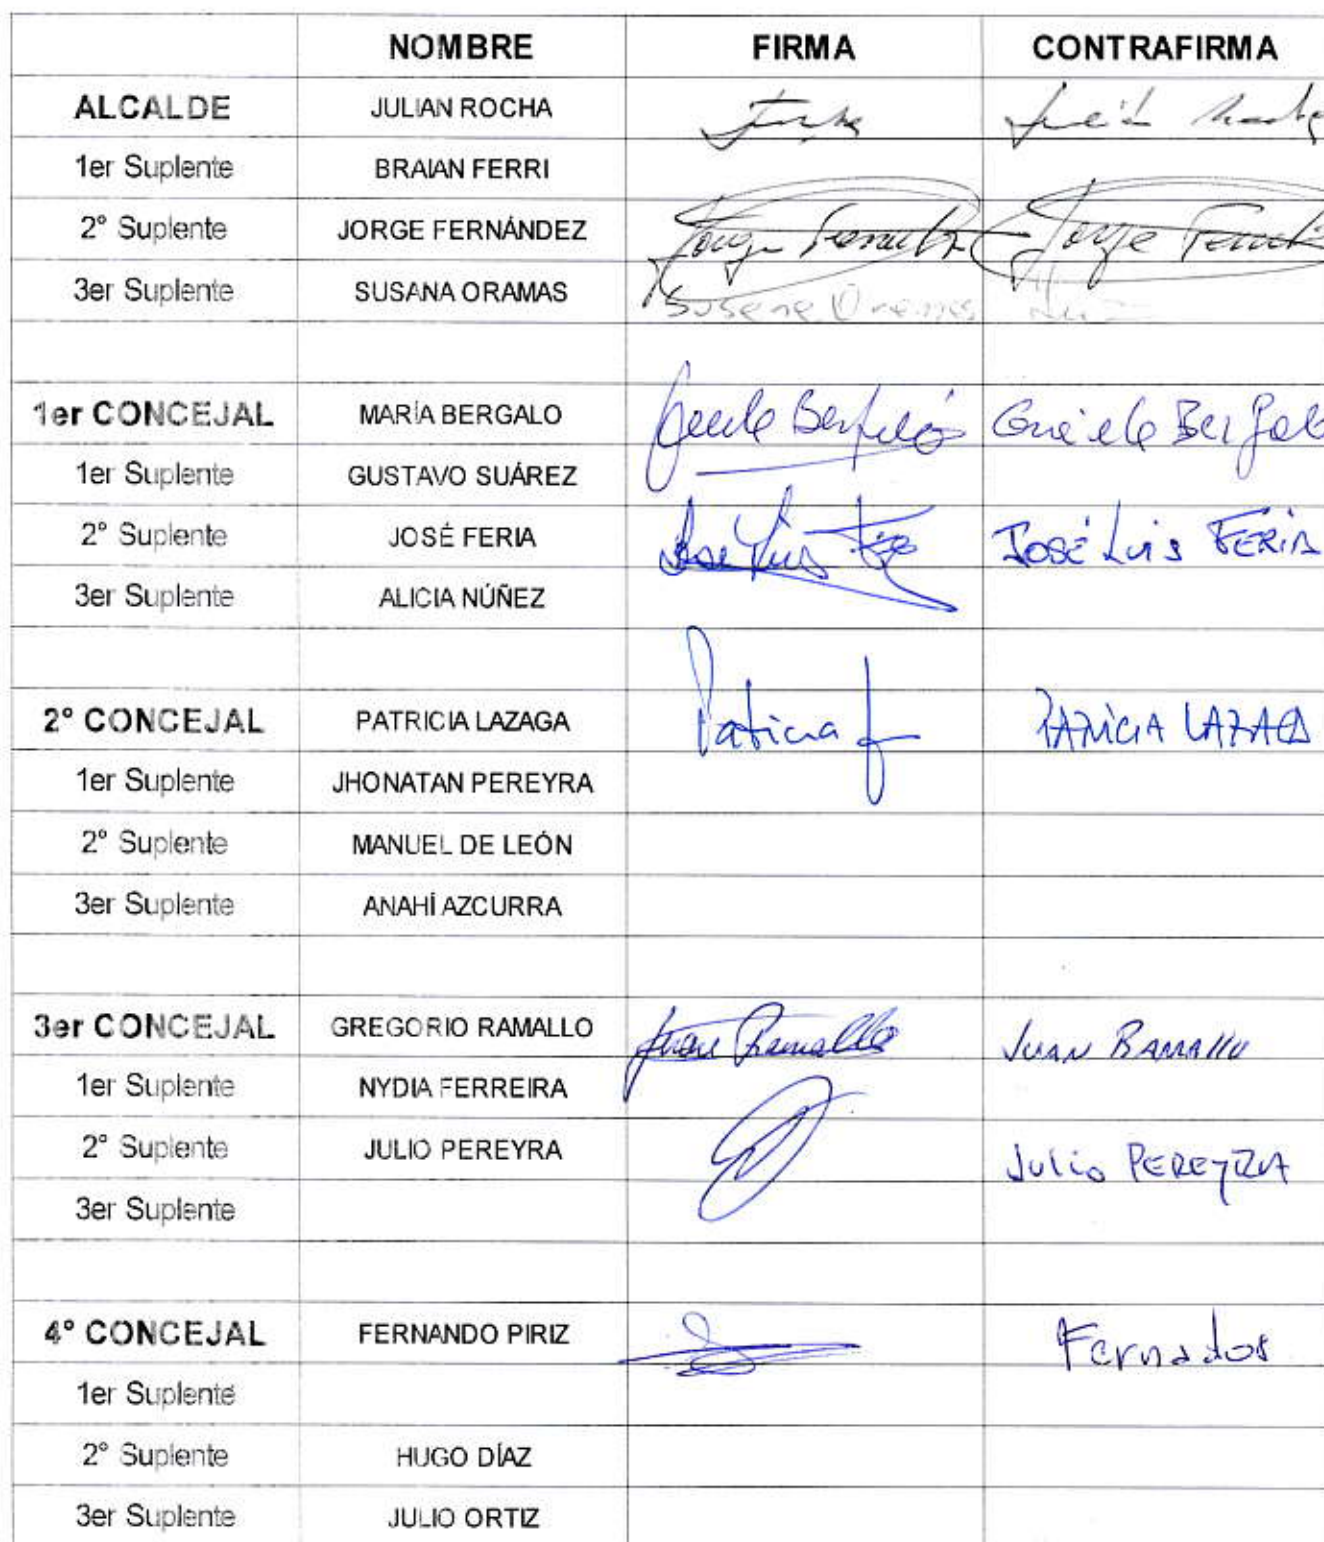 NOMBRE FIRMA CONTRAFIRMA
ALCALDE JULIAN ROCHA
1er Suplente BRAIAN FERRI
2° Suplente JORGE FERNÁNDEZ Jorge Jorge
3er Suplente SUSANA ORAMAS Susana Oramas
1er CONCEJAL MARÍA BERGALO
1er Suplente GUSTAVO SUÁREZ
2° Suplente JOSÉ FERIA Jose Luis JOSÉ LUIS FERIA
3er Suplente ALICIA NÚÑEZ
2° CONCEJAL PATRICIA LAZAGA Patricia PATRICIA LAZAGA
1er Suplente JHONATAN PEREYRA
2° Suplente MANUEL DE LEÓN
3er Suplente ANAHÍ AZCURRA
3er CONCEJAL GREGORIO RAMALLO Juan Ramallo JUAN RAMALLO
1er Suplente NYDIA FERREIRA
2° Suplente JULIO PEREYRA Julio PEREYRA
3er Suplente
4° CONCEJAL FERNANDO PIRIZ Fernados
1er Suplente
2° Suplente HUGO DÍAZ
3er Suplente JULIO ORTIZ